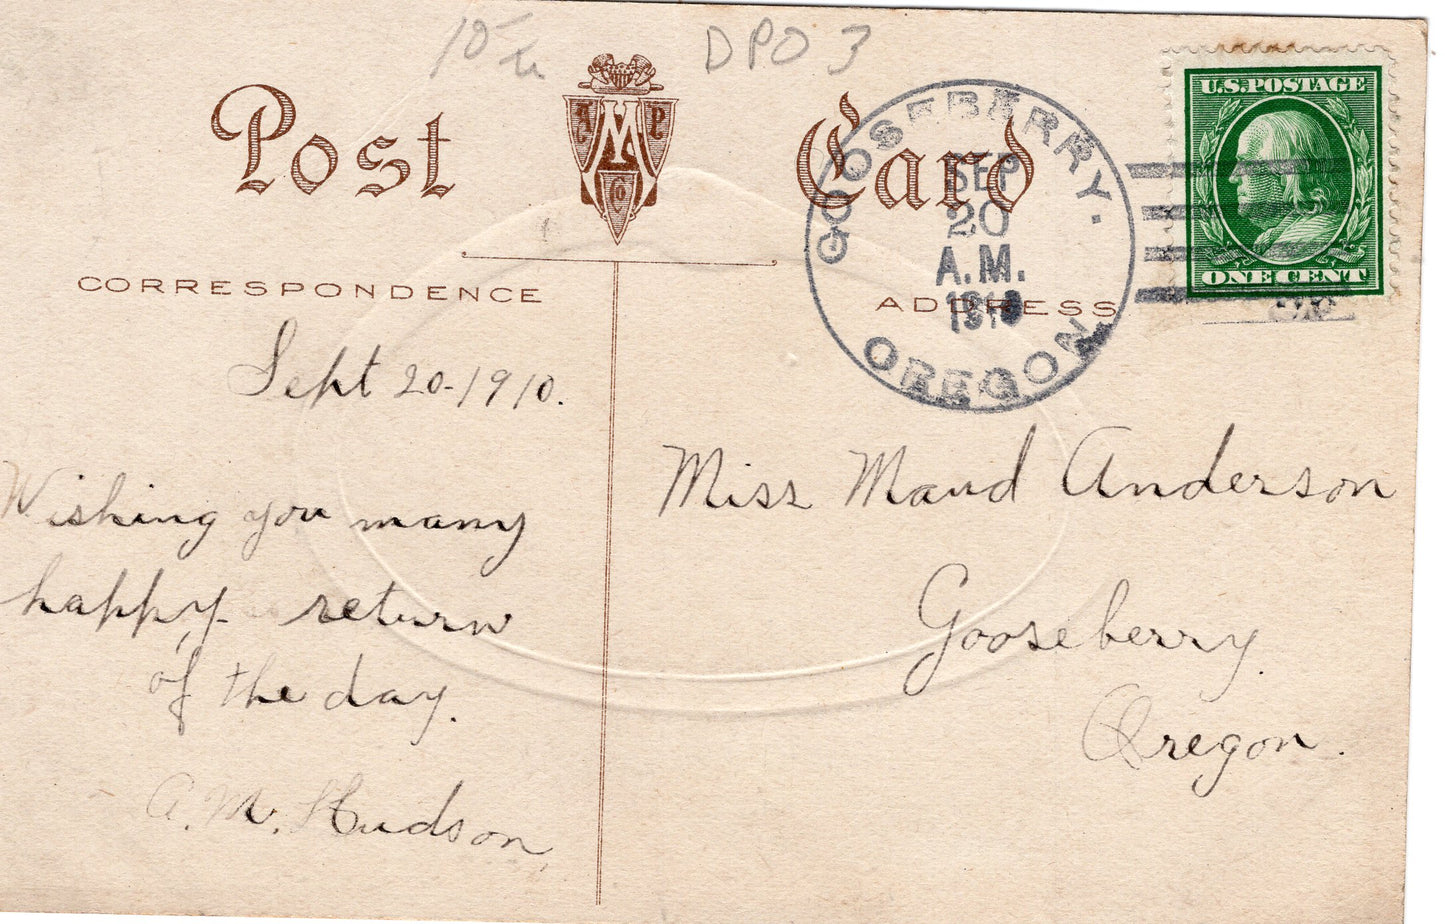 DPO 3
Post Card
A M P
Co
GOOSEBERRY.
SEP
20
A.M.
1910
OREGON
U.S.POSTAGE
ONE CENT
CORRESPONDENCE
ADDRESS
Sept 20-1910.
Wishing you many
happy return
of the day.
A. M. Hudson
Miss Maud Anderson
Gooseberry.
Oregon.